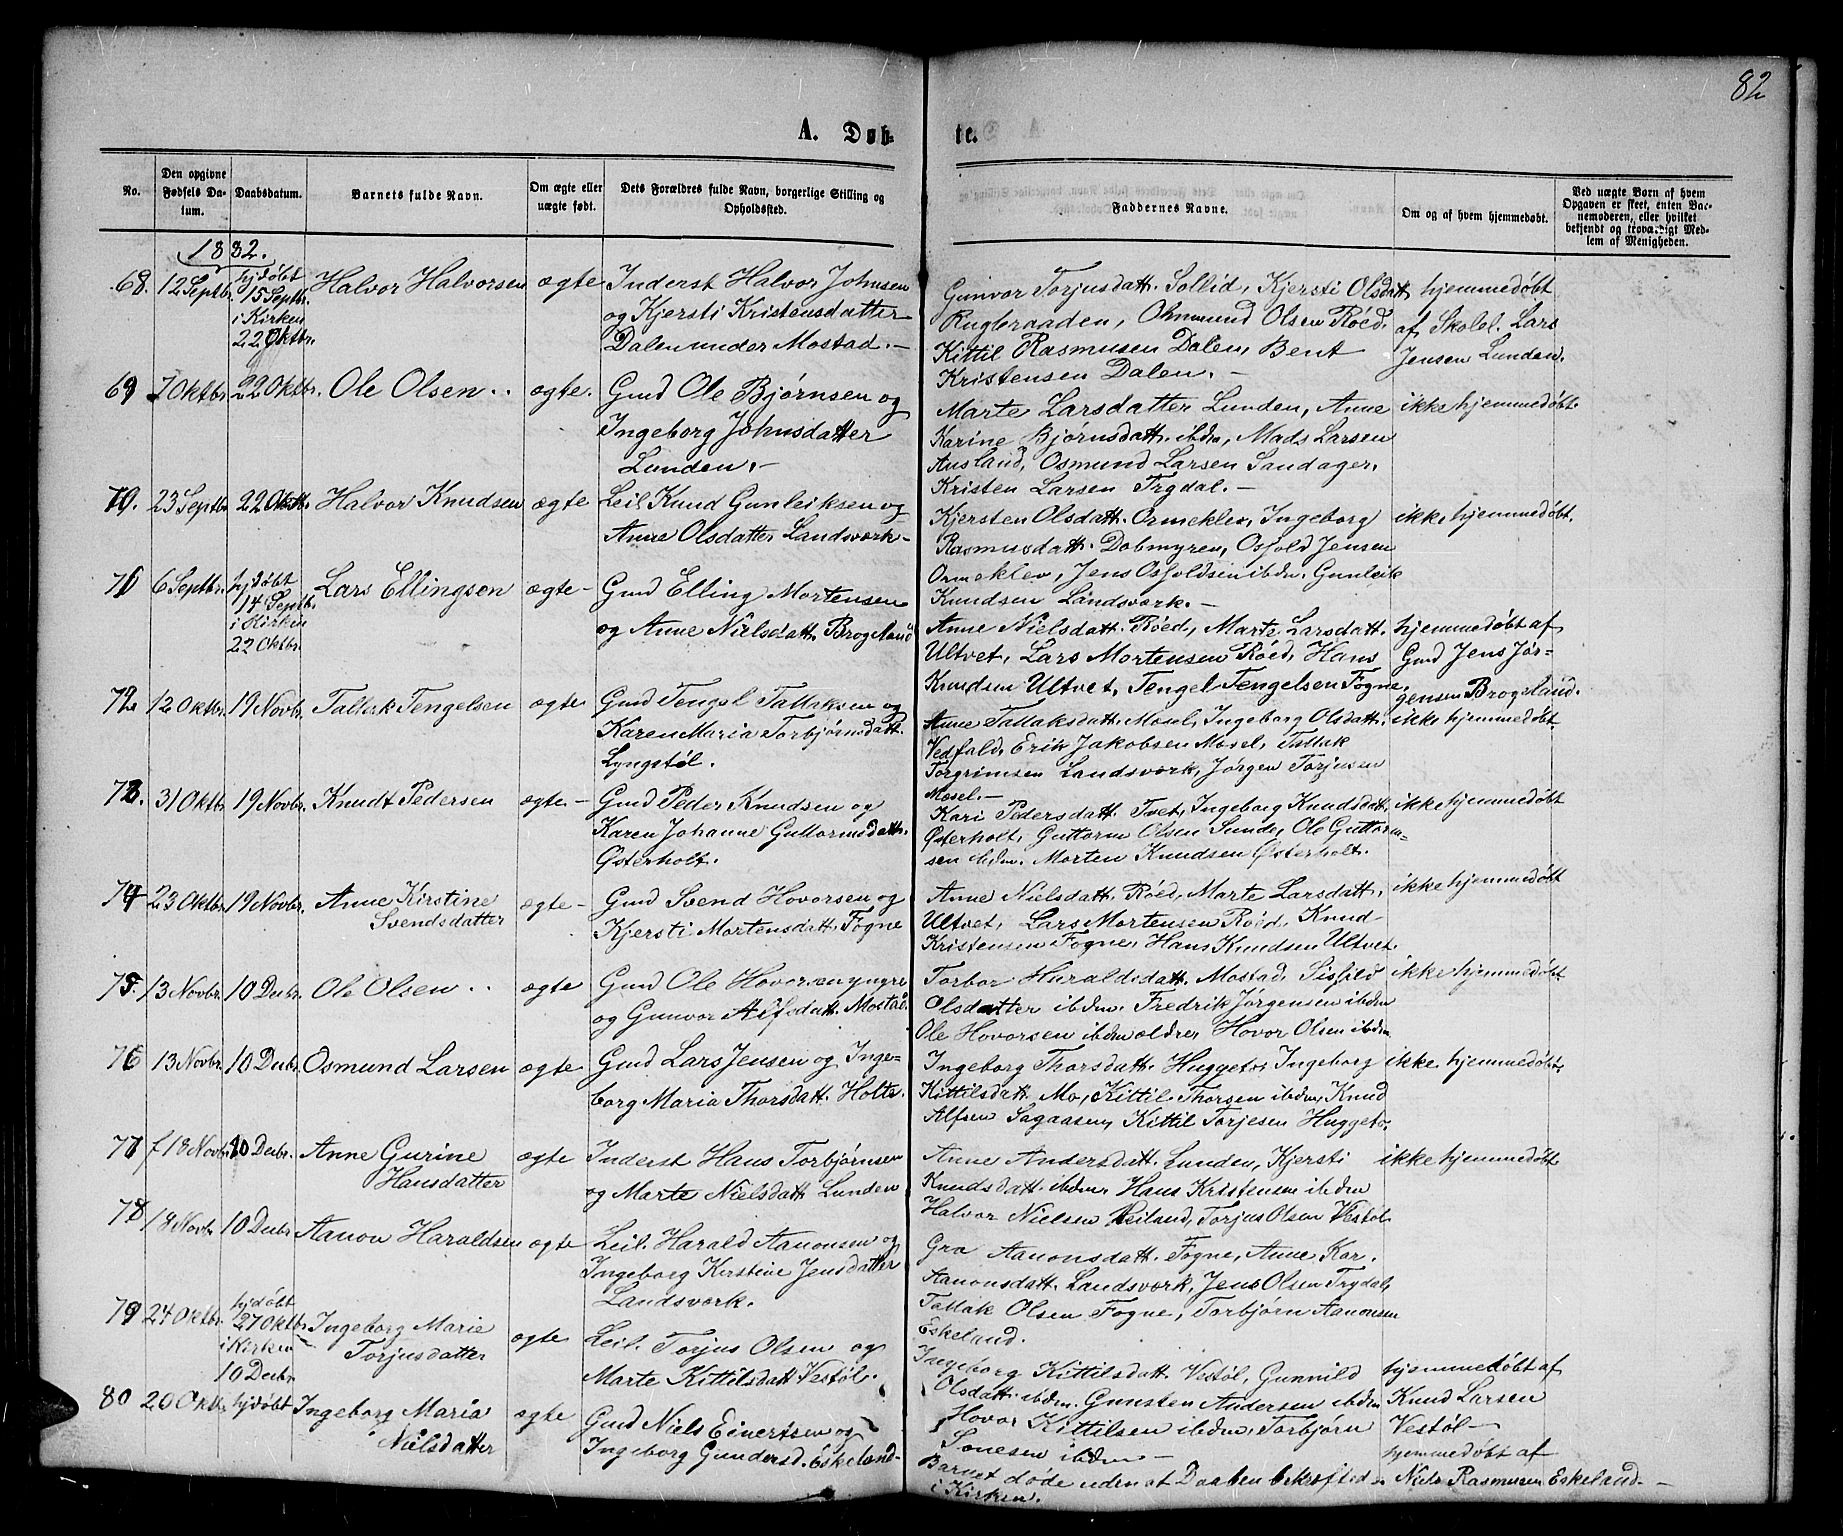 82
A. Døb-
te.
No.
Den opgivne Fødsels Da-tum.
Daabsdatum.
Barnets fulde Navn.
Om ægte eller uægte født.
Dets Forældres fulde Navn, borgerlige Stilling og Opholdssted.
Faddernes Navne.
Om og af hvem hjemmedøbt.
Ved uægte Børn af hvem Opgaven er skeet, enten Bar-nemoderen, eller hvilket bekjendt og troværdigt Med-lem af Menigheden.
1882.
68. 12 Septbr. hjdøbt 15 Septbr. i Kirken 22 Oktbr. Halvor Halvorsen ægte Inderst Halvor Johnsen
og Kjersti Kristensdatter
Dalen under Mostad.-
Gunvor Torjusdatt. Sollid, Kjersti Olsdatt
Rugleraaden, Ommund Olsen Røed.
Kittil Rasmusen Dalen, Bent
Kristensen Dalen.-
hjemmedøbt
af Skolel. Lars
Jensen Lunden.
69 7 Oktbr. 22 Oktbr. Ole Olsen.. ægte. Gmd Ole Bjørnsen og
Ingeborg Johnsdatter
Lunden.-
Marte Larsdatter Lunden, Anne
Karine Bjørnsdatt. ibdm, Mads Larsen
Ausland, Osmund Larsen Sandager,
Kristen Larsen Trydal.-
ikke hjemmedøbt.
70. 23 Septbr. 22 Oktbr. Halvor Knudsen ægte Leil. Knud Gunleiksen og
Anne Olsdatter Landsværk-
Kjersten Olsdatt. Ormeklev, Ingeborg
Rasmusdatt. Dobmyren, Osfold Jensen
Ormeklev, Jens Osfoldsen ibdm. Gunleik
Knudsen Landsværk.-
ikke hjemmedøbt.
71 6 Septbr. hjdøbt 14 Septb. i Kirken 22 Oktbr. Lars Ellingsen ægte- Gmd Elling Mortensen
og Anne Nielsdatt. Brogeland
Anne Nielsdatt. Røed, Marte Larsdatt.
Ultvet, Lars Mortensen Røed, Hans
Knudsen Ultvet, Tengel Tengelsen Fogne.
hjemmedøbt af
Gmd Jens Jør-
gensen Brogeland.
72 12 Oktbr. 19 Novbr. Tallak Tengelsen ægte Gmd Tengel Tallaksen og
Karen Maria Torbjørnsdatt.
Lyngstøl.
Anne Tallaksdatt. Mosel, Ingeborg Olsdatt.
Vedfald, Erik Jakobsen Mosel, Tallak
Torgrimsen Landsværk, Jørgen Torjusen
Mosel.-
ikke hjemmedøbt.
73. 31 Oktbr. 19 Novbr. Knudt Pedersen ægte.- Gmd Peder Knudsen og
Karen Johanne Guttormsdatt.
Østerholt.
Kari Pedersdatt. Tvet, Ingeborg Knudsdatt.
Østerholt, Guttorm Olsen Sunde, Ole Guttorm-
sen ibdm. Morten Knudsen Østerholt.
ikke hjemmedøbt
74 23 Oktbr. 19 Novbr. Anne Kirstine
Svendsdatter ægte- Gmd Svend Hovorsen og
Kjersti Mortensdatt. Fogne
Anne Nielsdatt. Røed, Marte Larsdatt.
Ultvet, Lars Mortensen Røed, Knud
Kristensen Fogne, Hans Knudsen Ultvet.
ikke hjemmedøbt
75. 13 Novbr. 10 Decbr. Ole Olsen.. ægte Gmd Ole Hovorsen yngre
og Gunvor Alfsdatt. Mostad
Torbor Haraldsdatt. Mostad, Sisjeld
Olsdatter ibdm. Fredrik Jørgensen ibdm
Ole Hovorsen ibdm ældre, Hovor Olsen ibdm
ikke hjemmedøbt
76 13 Novbr. 10 Decbr. Osmund Larsen ægte Gmd Lars Jensen og Inge-
borg Maria Thorsdatt. Holte.
Ingeborg Thorsdatt. Huggeto, Ingeborg
Kittilsdatt. Mo, Kittil Thorsen ibdm, Knud
Alfsen Sagaasen, Kittil Torjesen Huggeto.
ikke hjemmedøbt.
77 18 Novbr. 10 Decbr. Anne Gurine
Hansdatter ægte Inderst Hans Torbjørnsen
og Marte Nielsdatt. Lunden
Anne Andersdatt. Lunden, Kjersti
Knudsdatt. ibdm, Hans Kristensen ibdm
Halvor Nielsen Veiland, Torjus Olsen Vestøl
ikke hjemmedøbt
78 18 Novbr 10 Decbr. Aanon Haraldsen ægte Leil. Harald Aanonsen og
Ingeborg Kirstine Jensdatter
Landsværk.
Gro Aanonsdatt. Fogne, Anne Kar.
Aanonsdatt. Landsværk, Jens Olsen Trydal,
Tallak Olsen Fogne, Torbjørn Aanonsen
Eskeland.
79 24 Oktbr. hjdøbt 27 Oktbr i Kirken 10 Decbr. Ingeborg Marie
Torjusdatter ægte Leil. Torjus Olsen og
Marte Kittilsdatt Vestøl.
Ingeborg Kittilsdatt. Vestøl, Gunnild
Olsdatt. ibdm. Gunsten Andersen ibdm
Hovor Kittilsen ibdm, Torbjørn
Sonesen ibdm-
hjemmedøbt af
Knud Larsen
Vestøl-
80 20 Oktbr. hjdøbt Ingeborg Maria
Nielsdatter ægte Gmd Niels Einertsen og
Ingeborg Gundersd. Eskeland-
Barnet døde uden at Daaben bekræftedes
i Kirken.
hjemmedøbt af
Niels Rasmusen Eskeland.-